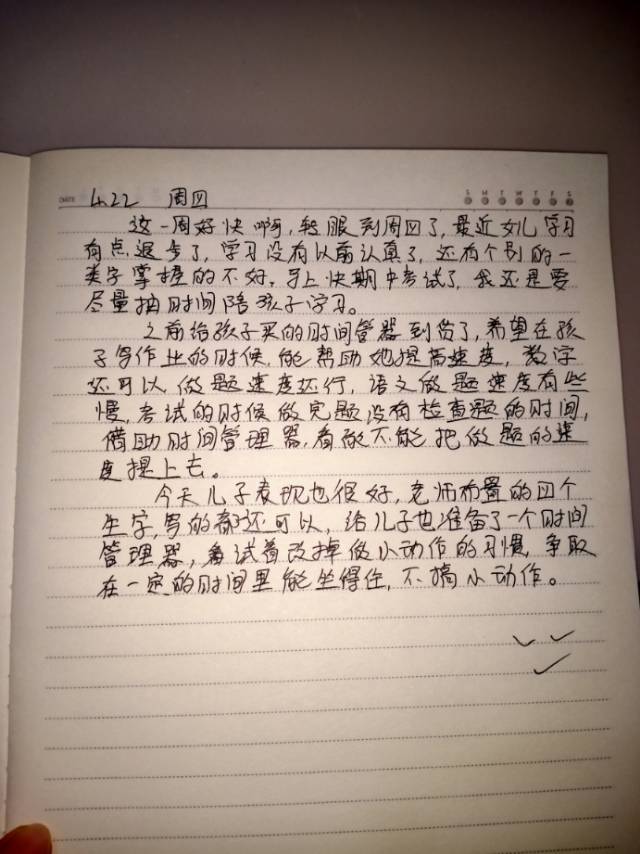 DATE 4.22 周四 S M T W T F S
这一周好快啊,转眼到周四了,最近女儿学习
有点退步了,学习没有以前认真了,还有个别的一
类字掌握的不好,马上快期中考试了,我还是要
尽量抽时间陪孩子学习。
之前给孩子买的时间管器到货了,希望在孩
子写作业的时候,能帮助她提高速度,数学
还可以,做题速度还行,语文做题速度有些
慢,考试的时候做完题没有检查题的时间,
借助时间管理器,看能不能把做题的速
度提上去。
今天儿子表现也很好,老师布置的四个
生字,写的都还可以,给儿子也准备了一个时间
管理器,看试着改掉做小动作的习惯,争取
在一定的时间里能坐得住,不搞小动作。